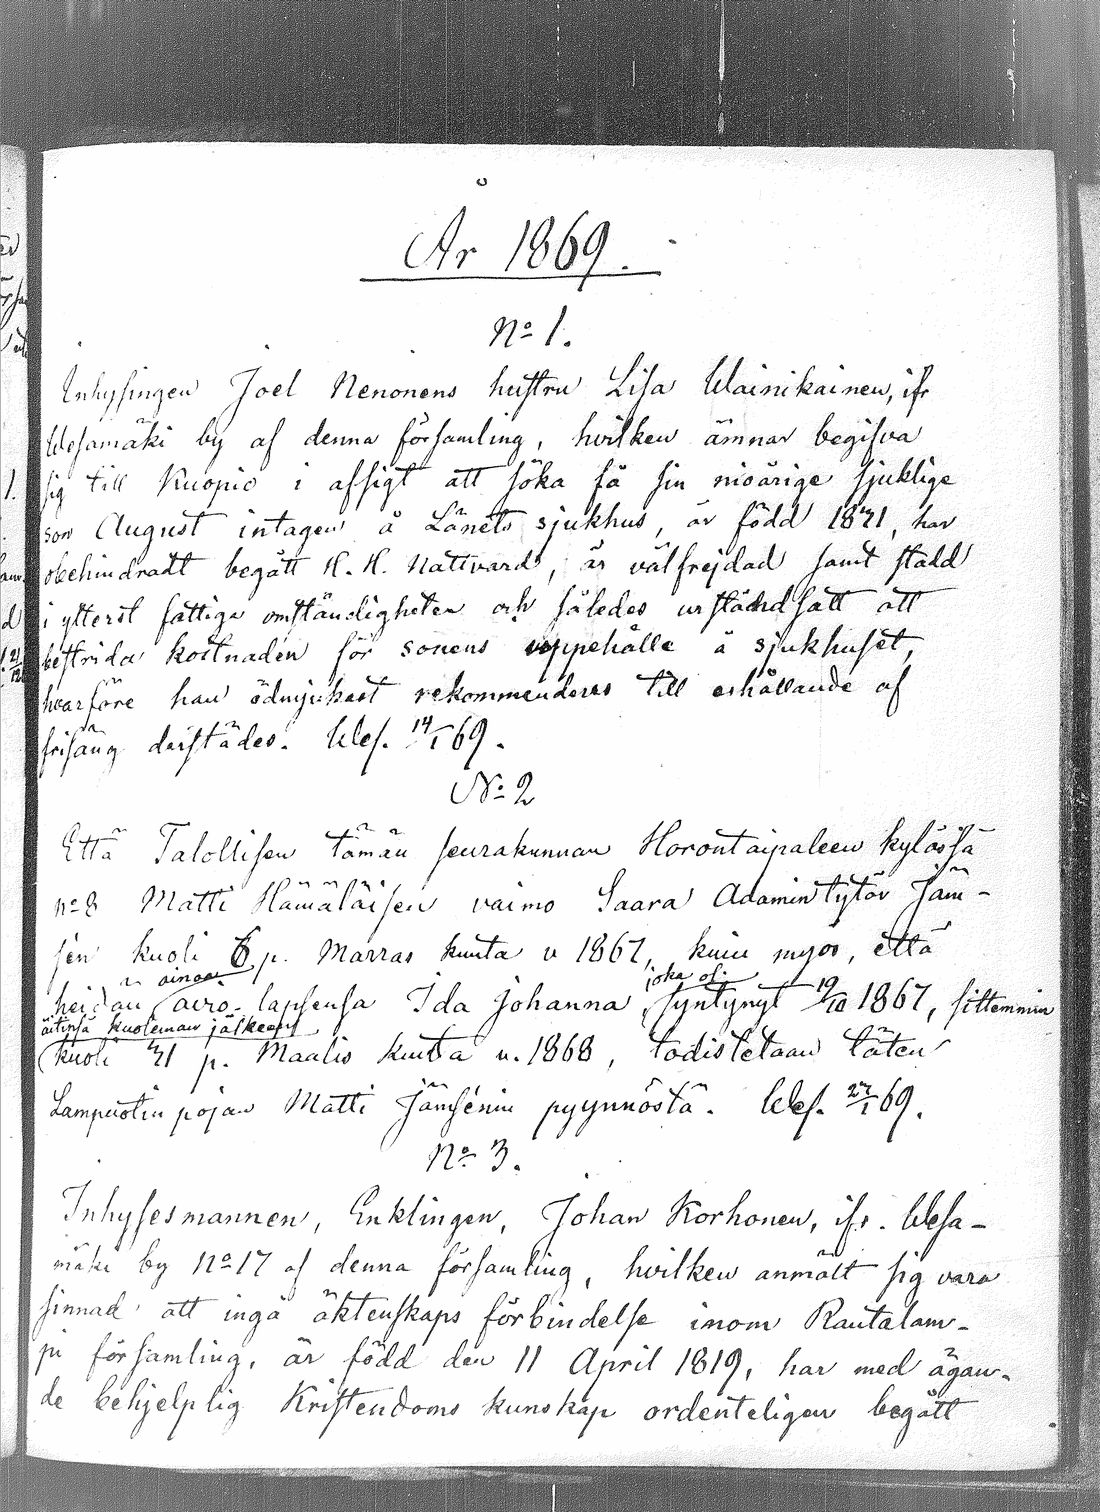 År 1869.
No 1.
Inhysingen Joel Nenonens hustru Lisa Wainikainen, ifr
Wesamäki by af denna församling, hvilken ämnar begifva
sig till Kuopio i afsigt att söka få sin nioårige sjuklige
son August intagen å Länets sjukhus, är född 1821, har
obehindradt begått H. H. Nattvard, är välfrejdad samt stadd
i ytterst fattiga omständigheter och således urståndsatt att
bestrida kostnaden för sonens uppehälle å sjukhuset,
hvarföre han ödmjukast rekommenderas till erhållande af
frisäng derstädes. Wes. 14/1 69.
No 2
Että Talollisen tämän seurakunnan Horontaipaleen kylässä
no 8 Matti Hämäläisen vaimo Saara Adamintytär Jäm-
sén kuoli 6 p. Marras kuuta v 1867, kuin myös, että
ainoa joka oli
heidän avio lapsensa Ida Johanna, syntynyt 19/10 1867, sittemmin
äitinsä kuoleman jälkeen
kuoli 21 p. Maalis kuuta v. 1868, todistetaan täten
Lampuotin pojan Matti Jämsénin pyynnöstä. Wes. 27/1 69.
No 3.
Inhysesmannen, Enklingen, Johan Korhonen, ifr. Wesa-
mäki by No 17 af denna församling, hvilken anmält sig vara
sinnad att ingå äktenskaps förbindelse inom Rautalam-
pi församling, är född den 11 April 1819, har med ägan-
de behjelplig Kristendoms kunskap ordenteligen begått